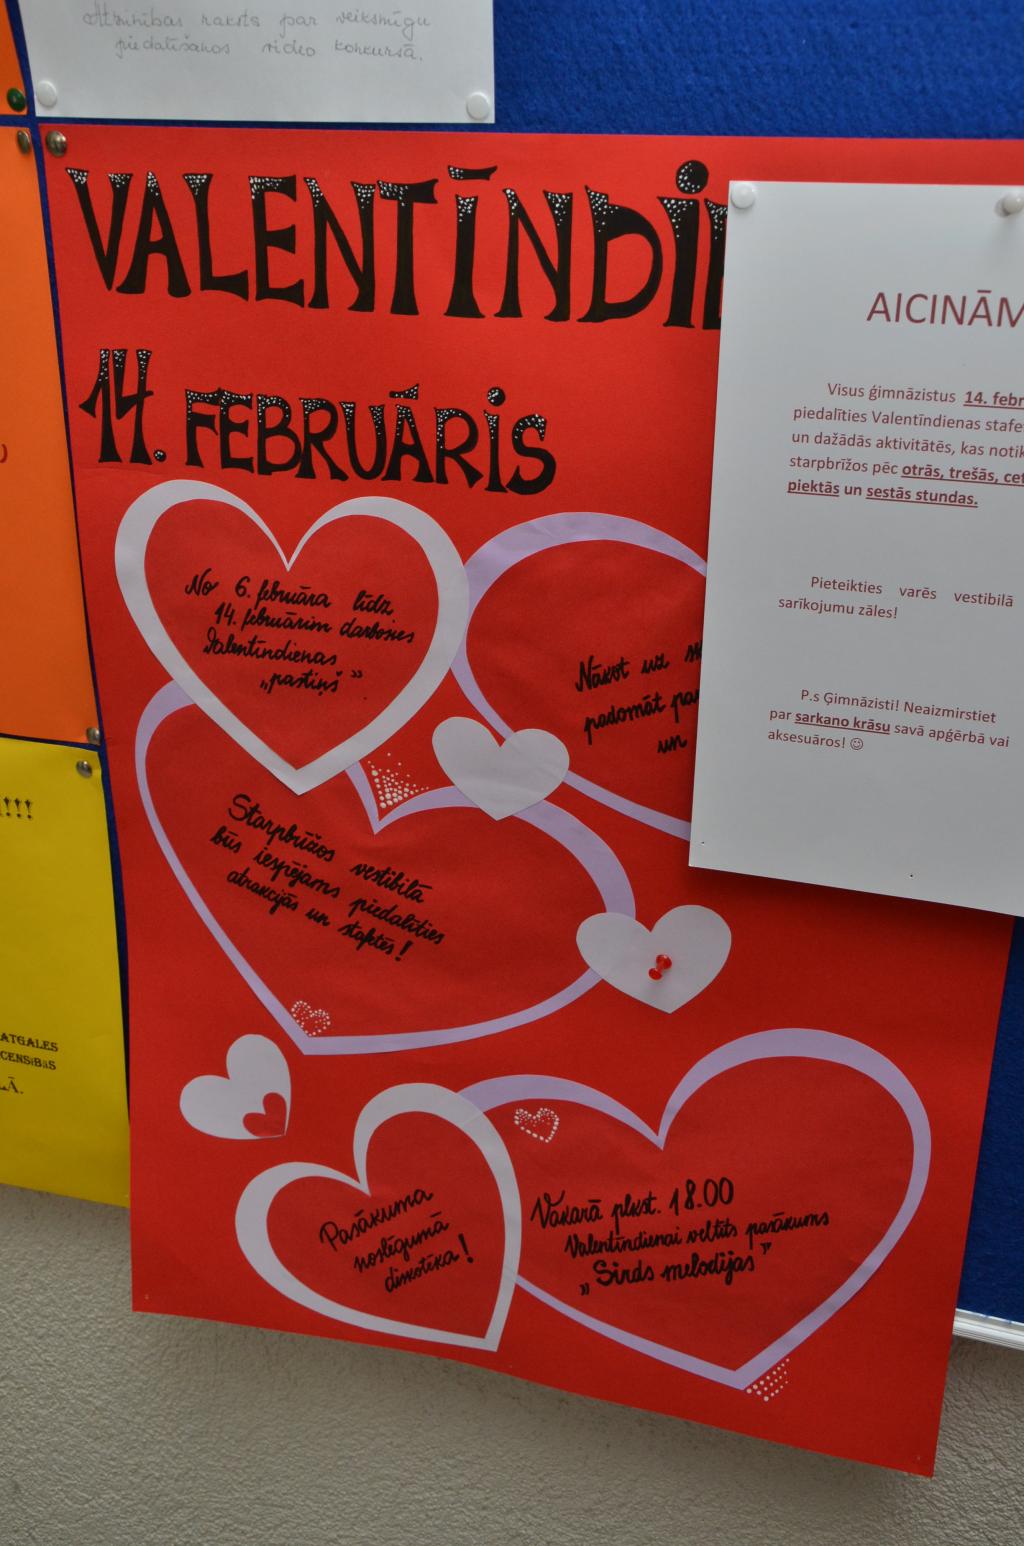 Atzinības raksts par veiksmīgu
piedalīšanos video konkursā.
VALENTĪNDIE
14. FEBRUĀRIS
No 6. februāra līdz
14. februārim darbosies
Valentīndienas
„pastiņš”
Nākot uz
padomāt
un
Starpbrīžos vestibilā
būs iespējams piedalīties
atrakcijās un stafetēs!
Pasākuma
noslēgumā
diskotēka!
Vakarā plkst. 18.00
Valentīndienai veltīts pasākums
„Sirds melodijas”
AICINĀM
Visus ģimnāzistus 14. febr
piedalīties Valentīndienas stafe
un dažādās aktivitātēs, kas notik
starpbrīžos pēc otrās, trešās, cet
piektās un sestās stundas.
Pieteikties varēs vestibilā
sarīkojumu zāles!
P.s Ģimnāzisti! Neaizmirstiet
par sarkano krāsu savā apģērbā vai
aksesuāros! ☺
!!!
ATGALES
CENSĪBĀS
LĀ.